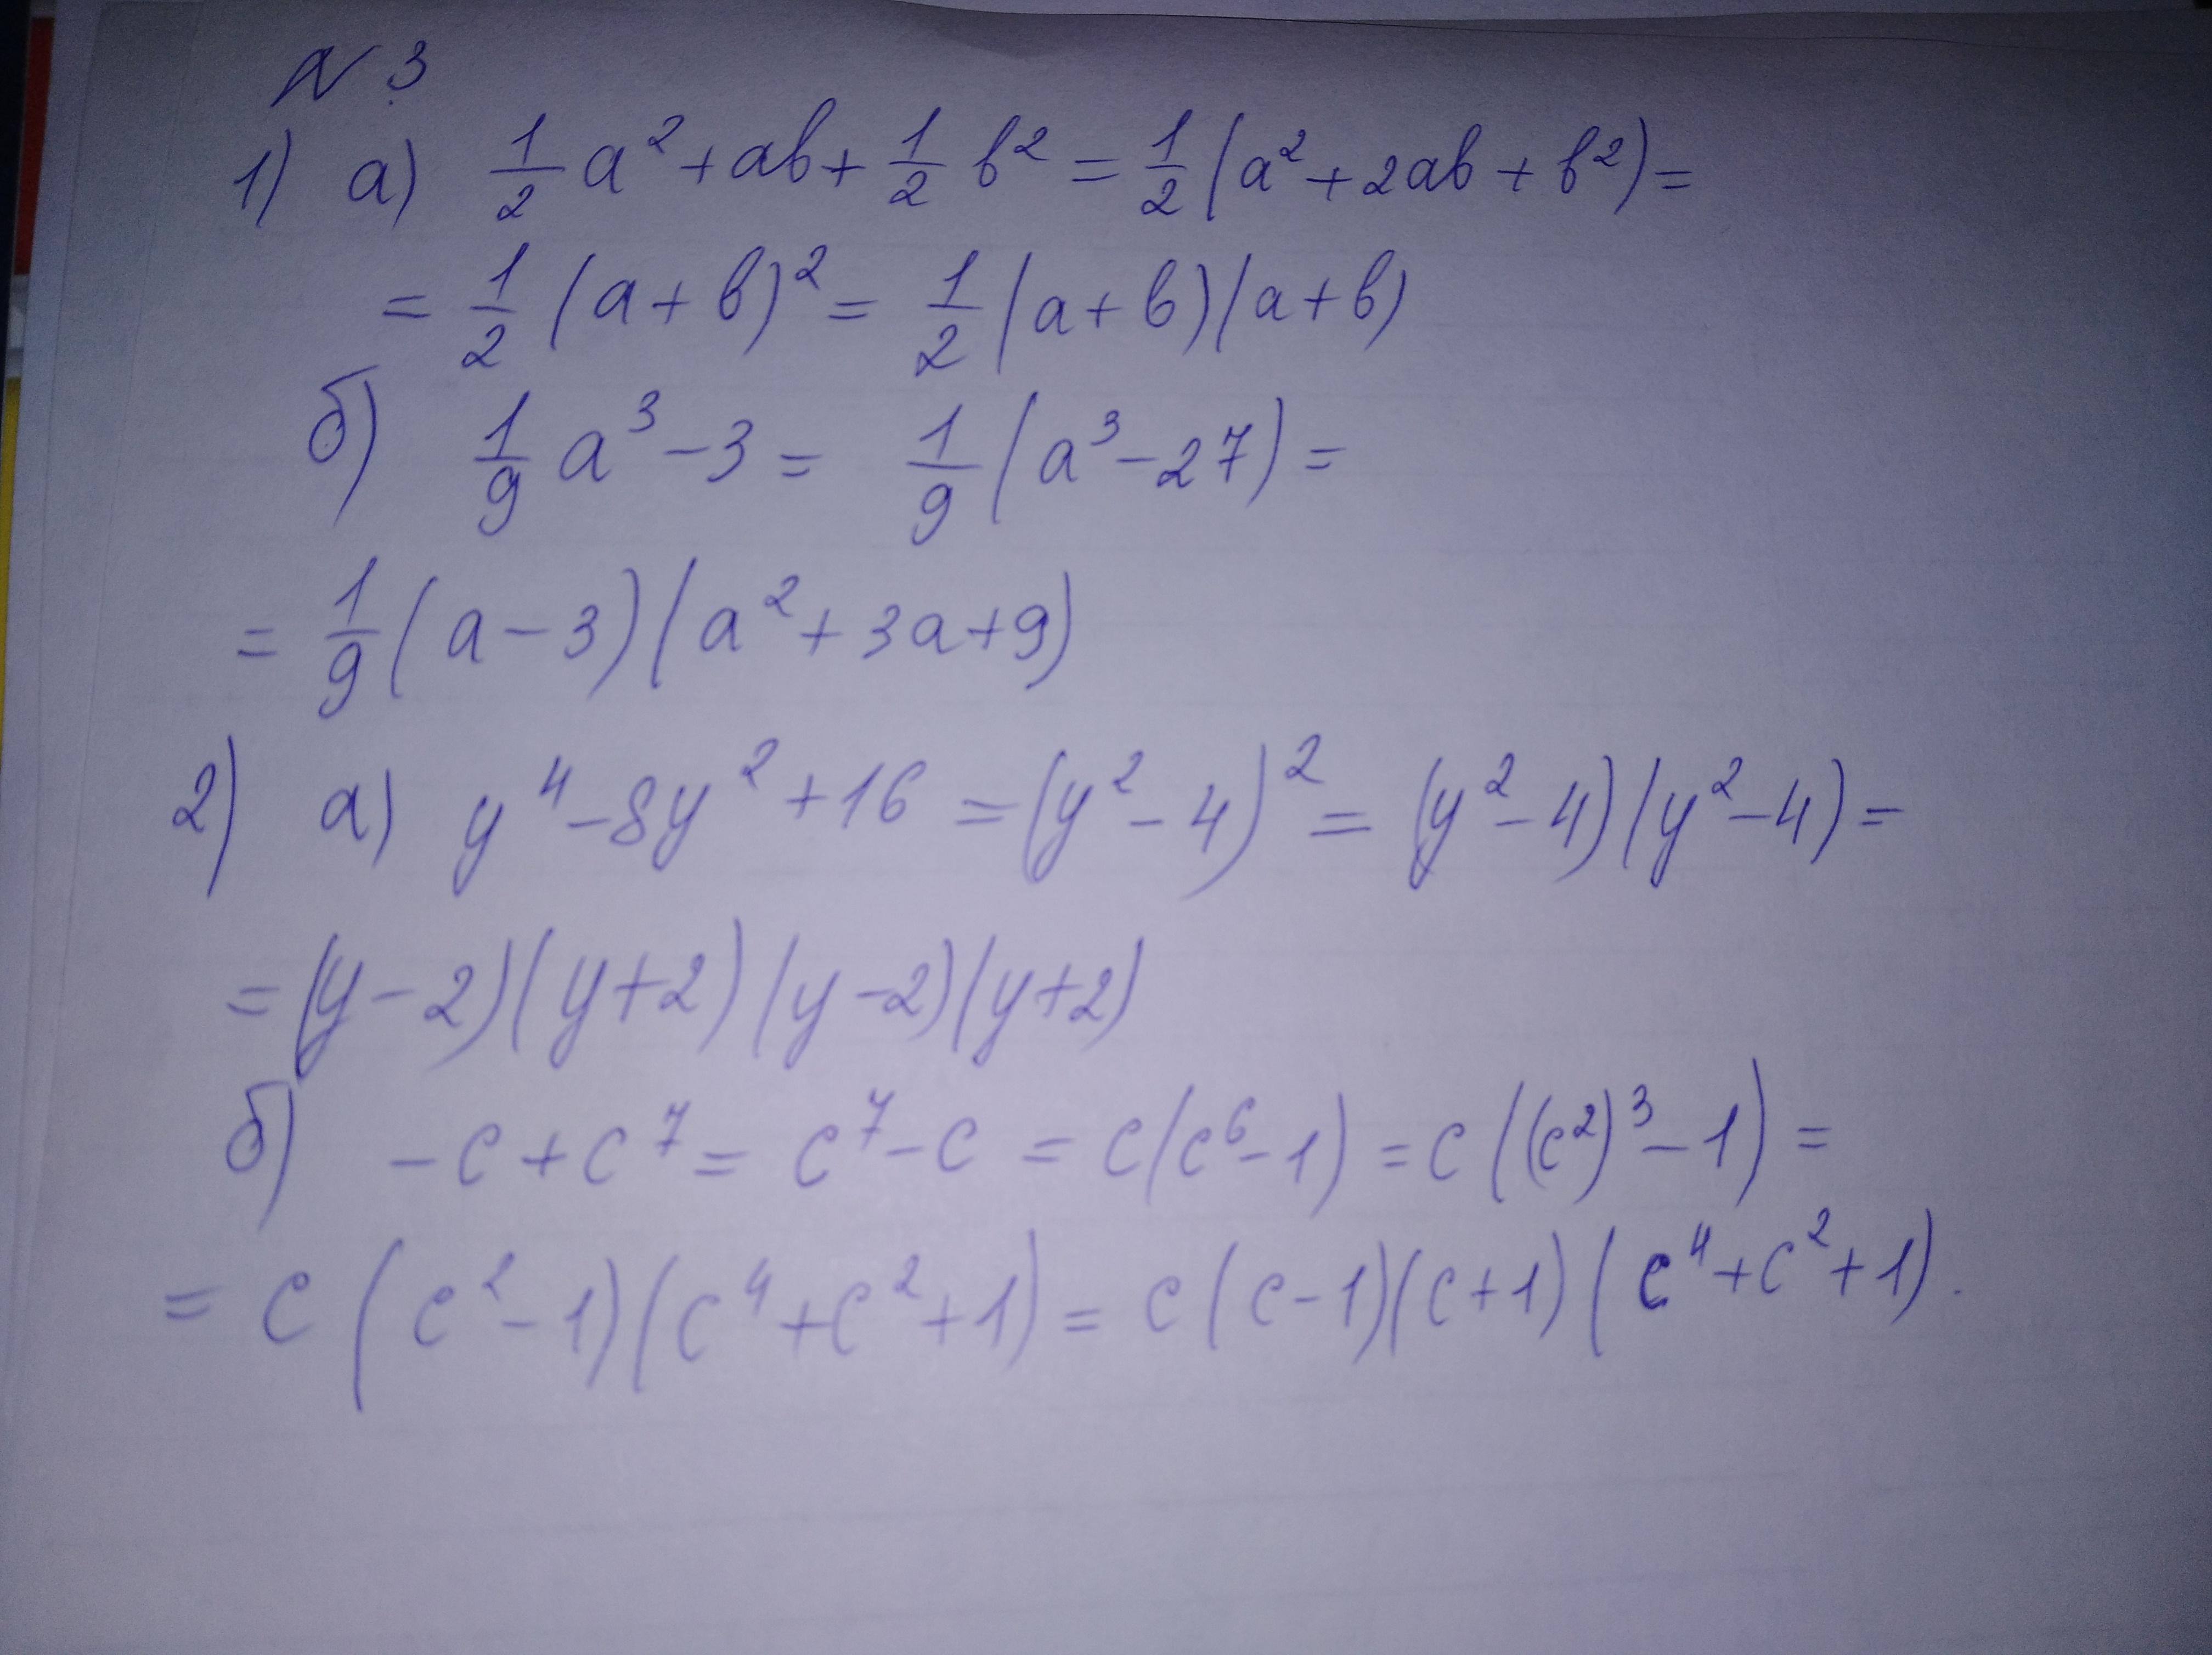 N 3
1) а) 1/2 a² + ab + 1/2 b² = 1/2 (a² + 2ab + b²) =
= 1/2 (a + b)² = 1/2 (a + b)(a + b)
б) 1/9 a³ - 3 = 1/9 (a³ - 27) =
= 1/9 (a - 3)(a² + 3a + 9)
2) а) y⁴ - 8y² + 16 = (y² - 4)² = (y² - 4)(y² - 4) =
= (y - 2)(y + 2)(y - 2)(y + 2)
б) -c + c⁷ = c⁷ - c = c(c⁶ - 1) = c((c²)³ - 1) =
= c(c² - 1)(c⁴ + c² + 1) = c(c - 1)(c + 1)(c⁴ + c² + 1).